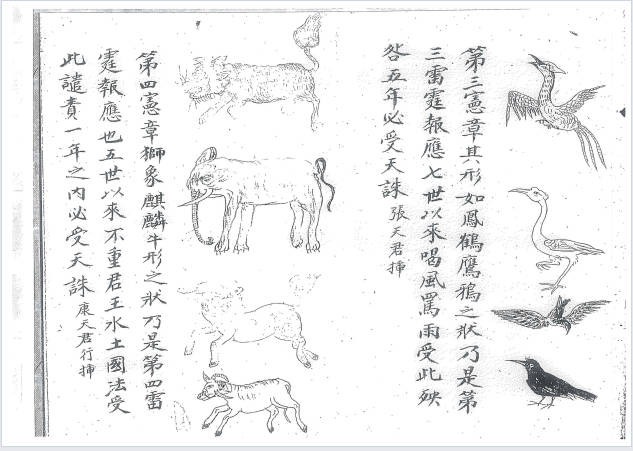 第三憲章其形如鳳鶴鷹鴉之狀乃是第
三雷霆報應七世以來喝風罵雨受此殃
咎五年必受天誅 張天君挿
第四憲章獅象麒麟牛形之狀乃是第四雷
霆報應也五世以來不重君王水土國法受
此譴責一年之內必受天誅 康天君行挿